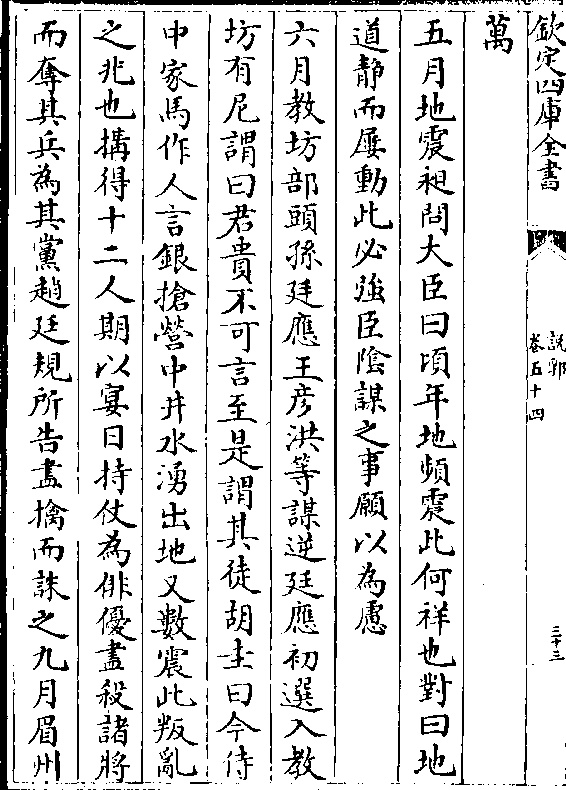 欽定四庫全書
說郛
卷五十四
三十三
萬
五月地震昶問大臣曰頃年地頻震此何祥也對曰地
道靜而屢動此必強臣陰謀之事願以為慮
六月教坊部頭孫廷應王彦洪等謀逆廷應初選入教
坊有尼謂曰君貴不可言至是謂其徒胡圭曰今侍
中家馬作人言銀搶營中井水湧出地又數震此叛亂
之兆也搆得十二人期以宴日持仗為俳優盡殺諸將
而奪其兵為其黨趙廷規所告盡擒而誅之九月眉州